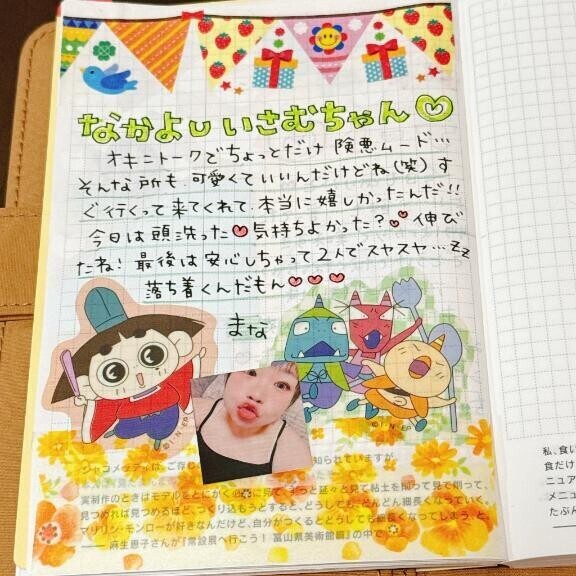 なかよしいさむちゃん♡
オキニトークでちょっとだけ険悪ムード…
そんな所も可愛くていいんだけどね(笑)す
ぐ行くって来てくれて本当に嬉しかったんだ!!
今日は頭洗った♥気持ちよかった?💕伸び
たね!最後は安心しちゃって2人でスヤスヤ…zz
落ち着くんだもん♥♥♥
まな
©I・N・EP
©I・N・EP
ジャコメッティは、ご存じ
知られていますが
実制作のときはモデルをとにかく
見て、ずっと延々と見て粘土を削って見て削って、
見つめれば見つめるほど、つくり込もうとすると、どうしても、どんどん細長くなっていく。
マリリン・モンローが好きなんだけど、自分がつくるとどうしても細長くなってしまう、と。
── 麻生恵子さんが『常設展へ行こう!富山県美術館篇』の中で
私、食い
食だけ
ニュア
メニュ
たぶん